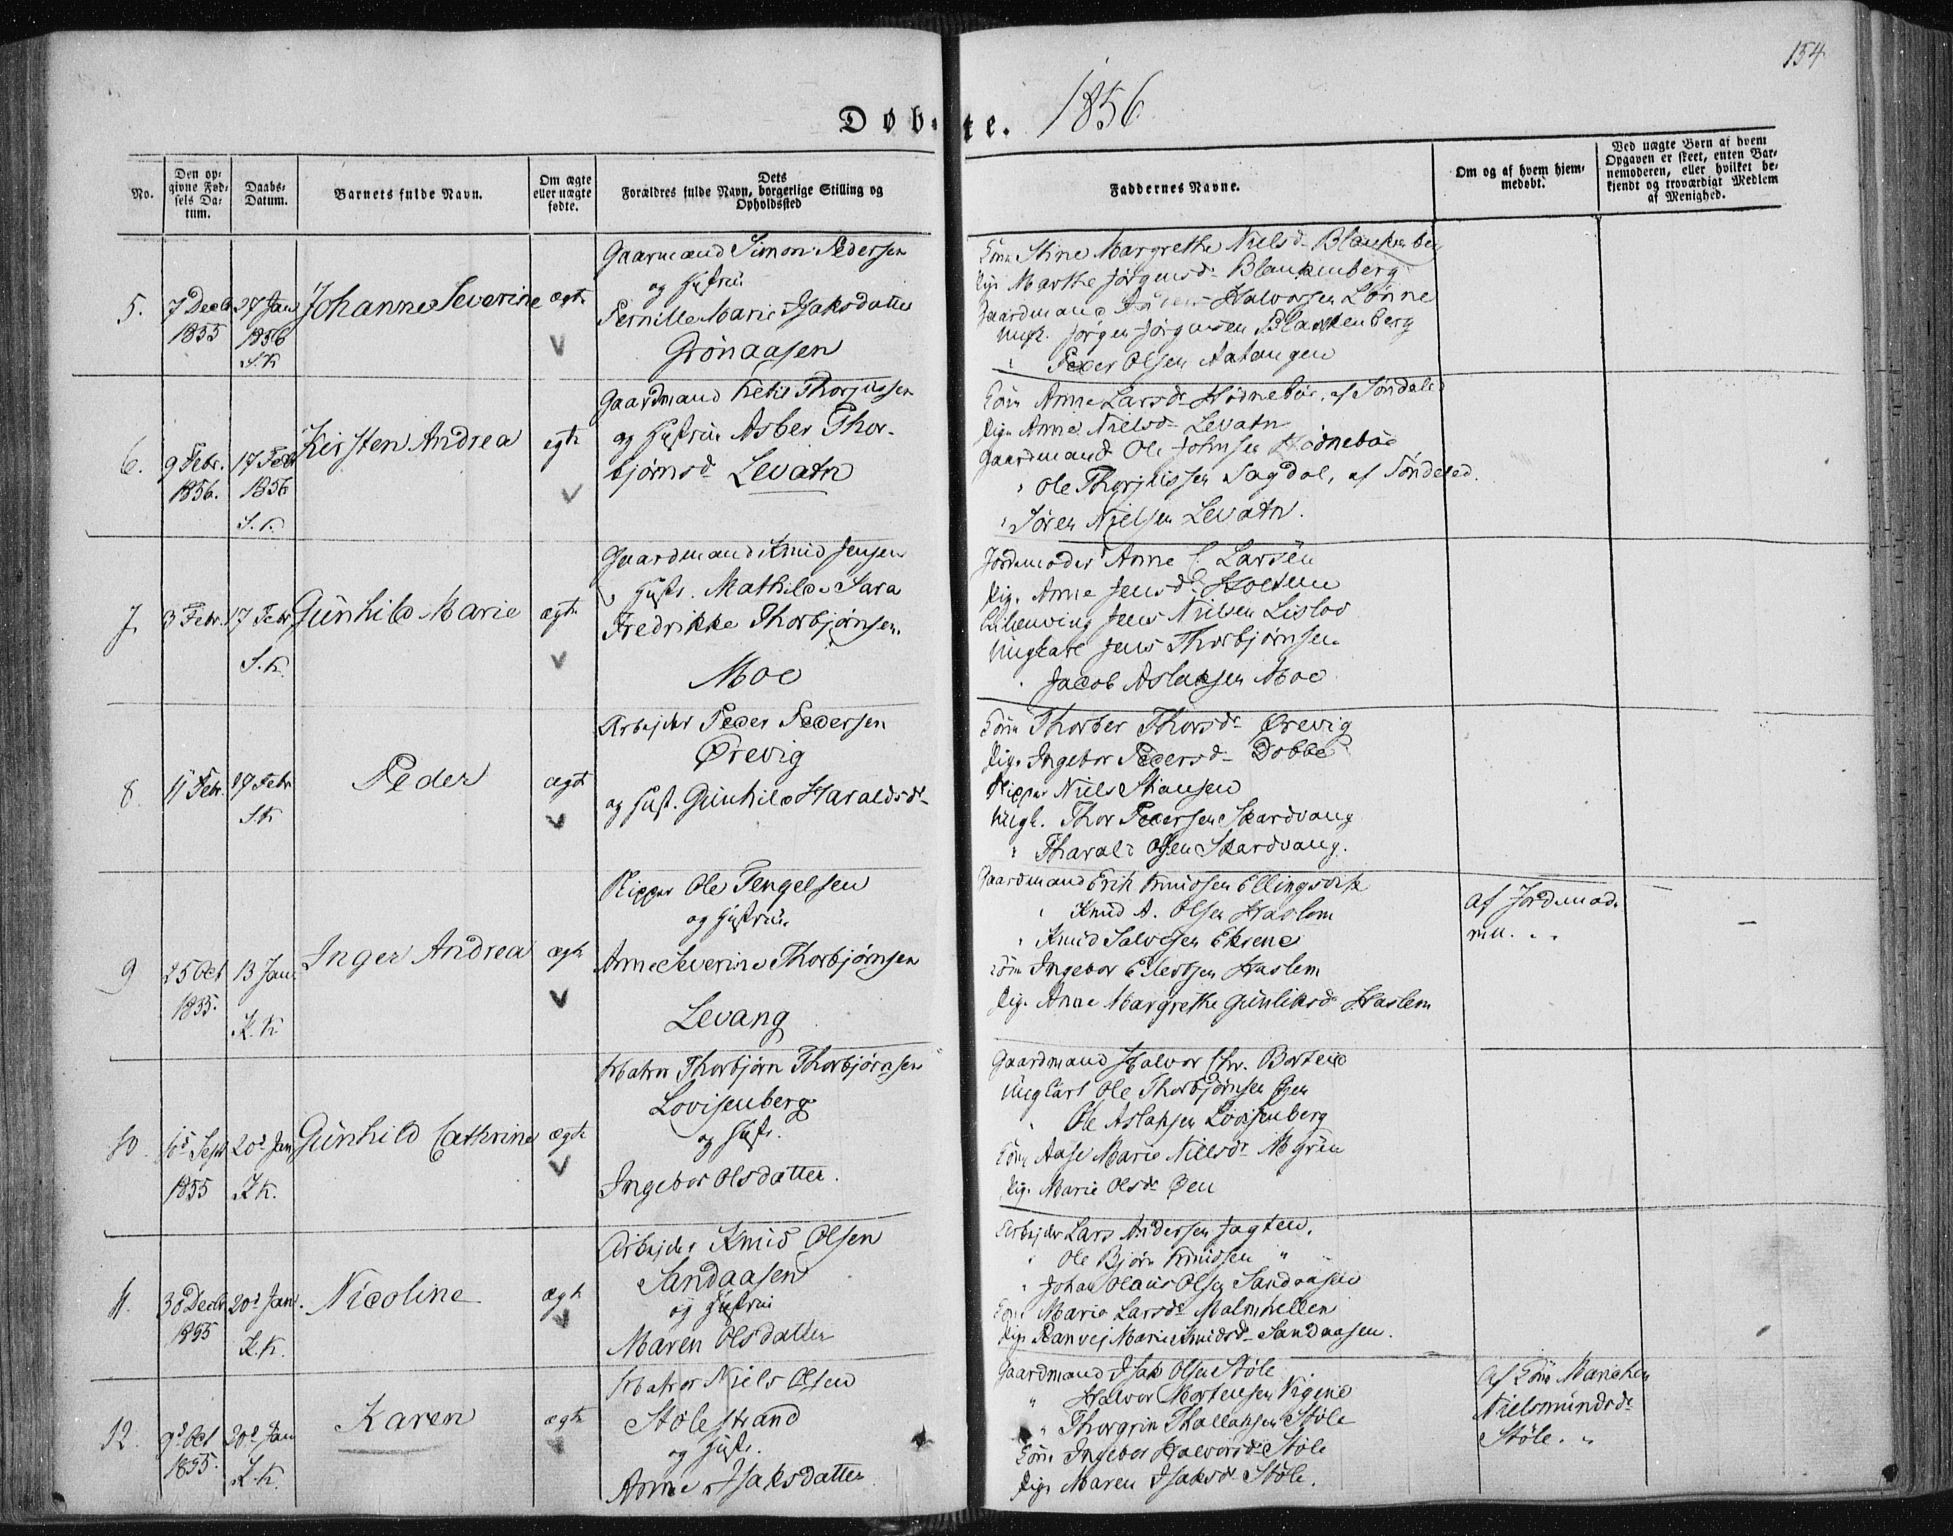 154
Døbte. 1856
No.
Den opgivne Fødsels Datum.
Daabs-Datum.
Barnets fulde Navn.
Om ægte eller uægte fødte.
Dets Forældres fulde Navn, borgerlige Stilling og Opholdssted
Faddernes Navne.
Om og af hvem hjemmedøbt.
Ved uægte Børn af hvem Opgaven er skeet, enten Barnemoderen, eller hvilket bekjendt og troværdigt Medlem af Menighed.
5.
7 Decbr
1855
27 Jan
1856
S.K
Johanne Severine
ægte
Gaarmand Simon Pedersen
og Hustrue
Pernille Marie Isaksdatter
Grönaasen
Kone Stine Margrethe Nielsd. Blankenberg
Pige Marthe Jørgensd. Blankenberg
Gaardmand Halvorsen Lønne
Ungk. Jørgen Jørgensen Blankenberg
" Peder Olsen Aatangen
6.
9 Febr.
1856.
17 Febr
1856
S.K.
Kirsten Andrea
egte
Gaardmand Ketil Thorjussen
og Hustrue Asber Thor-
bjørnsd. Levatn
Kone Anne Larsdr Hødnebøe, af Søndeled
Pige Anne Nielsd. Levatn
Gaardmand Ole Johnsen Hødnebøe
" Ole Thorjussen Sagdal, af Søndeled.
" Søren Nielsen Levatn.
7.
3 Febr.
17 Febr
S.K.
Günhild Marie
ægte
Gaardmand Knud Jensen
Hustr. Mathilde Sara
Fredrikke Thorbjørnsen.
Moe
Jordemoder Anne C Larsen
Pige Anne Jensd. Holtene
Jens Nielsen
Ungkarl Jens Thorbjørnsen
" Jacob Aslaksen Moe
8.
11 Febr.
27 Febr
SK
Peder
ægte
Arbejder Peder Pedersen
Ørevig
og Hust. Günhild Haraldsdr
Kone Thorber Thorsdr Ørevig
Pige Ingebor Pedersd. Dobbe
Skipper Niels Hansen
Ungk. Thor Pedersen Skardvang
" Tharald Olsen Skardvang.
9
25 Oct
1855.
13 Jan.
K.K
Inger Andrea
ægte
Skipper Ole Tengelsen
og Hustrue
Anne Severine Thorbjørnsen
Levang
Gaardmand Erik Knudsen Ellingsvik
" Knud A. Olsen Haslem
" Knud Salvesen Ekrene
Kone Ingebor Ellefsen Haslem
Pige Anne Margrethe Günliksd. Haslem
af Jordemode
ren. "
10.
16d Sept
1855
20d Jan
K.K.
Günhild Cathrine
ægte
Matros Thorbjörn Thorbjørnsen
Lovisenberg
og Hustr.
Ingebor Olsdatter.
Gaardmand Halvor Chr. Bortene
Ungkarl Ole Thorbjørnsen Øen
" Ole Aslaksen Lovisenberg
Kone Aase Marie Nielsdr Mÿren
Pige Marie Olsdr Øen
11.
30 Decbr
1855
20d Jan.
K.K.
Nicoline
ægte
Arbejder Knud Olsen
Sandaasen
og Hustrue
Maren Olsdatter
Arbejder Lars Andersen Jagten.
" Ole Bjørn Knudsen "
" Johan Olaus Olsen Sandaasen
Kone Marie Larsdr Malmhellen
Pige Ranvej Marie Knudsd. Sandaasen.
12.
9d Oct
1855.
20d Jan
K.K.
Karen
ægte
Matros Niels Olsen
Stølestrand
og Hustr.
Anne Isaksdatter
Gaardmand Isak Olsen Støle
" Halvor Mortensen Vigene
" Thorgrim Thallaksen Støle
Kone Ingebor Halvorsdr Støle
Pige Maren Isaksdr Støle.
af Kone Mariken
Nielsmundsdr
Støle. "